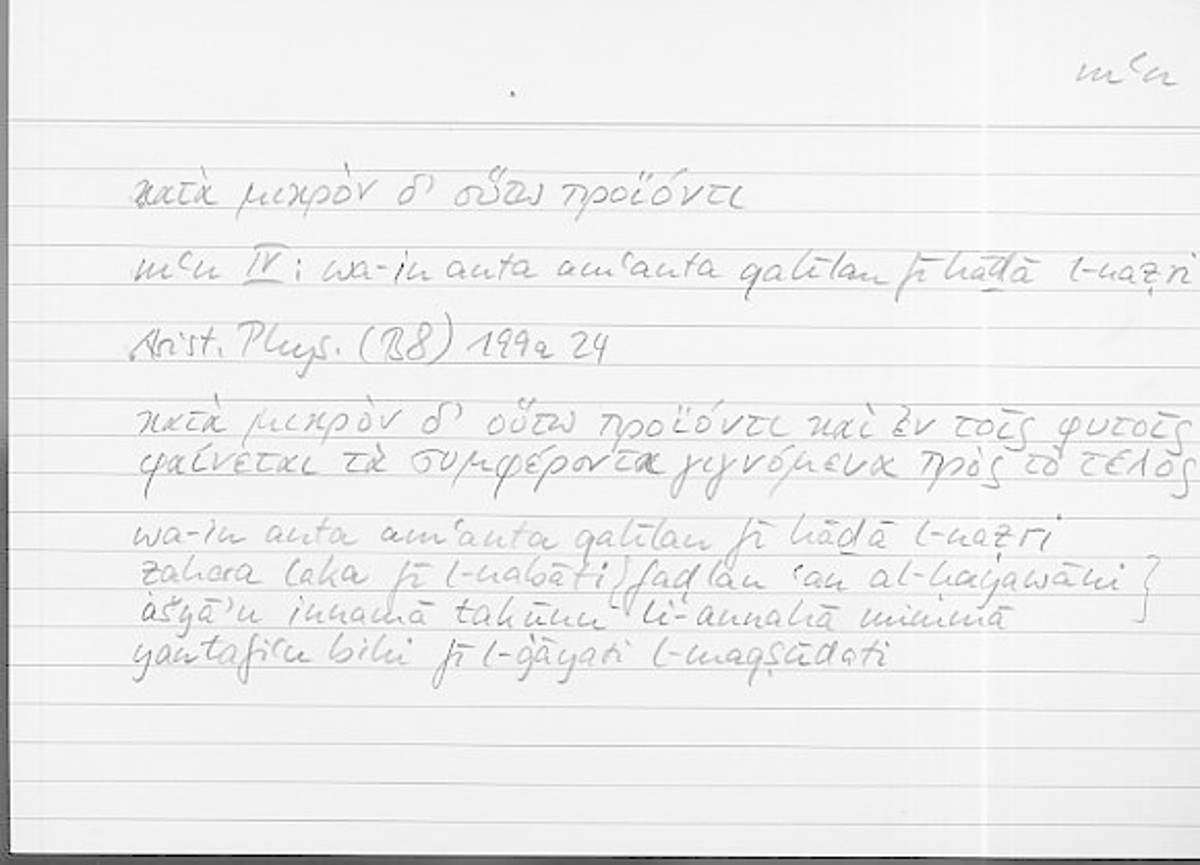 mʿn
κατὰ μικρὸν δ' οὕτω προϊόντι
mʿn IV: wa-in anta amʿanta qalīlan fī hāḏā l-naẓri
Arist. Phys. (B8) 199a 24
κατὰ μικρὸν δ' οὕτω προϊόντι καὶ ἐν τοῖς φυτοῖς
φαίνεται τὰ συμφέροντα γιγνόμενα πρὸς τὸ τέλος
wa-in anta amʿanta qalīlan fī hāḏā l-naẓri
ẓahara laka fī l-nabāti {faḍlan ʿan al-ḥayawāni}
ašyāʾu innamā takūnu li-annahā mimmā
yantafiʿu bihi fī l-ġāyati l-maqṣūdati